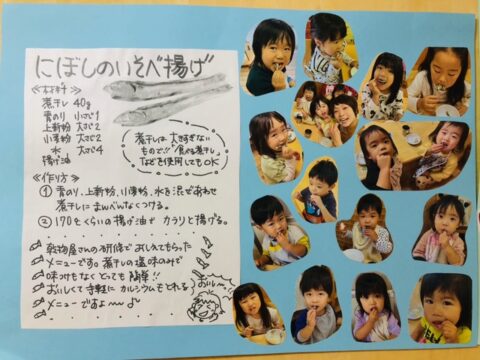 にぼしのいそべ揚げ
≪材料≫
煮干し 40g
青のり 小さじ1
上新粉 大さじ2
小麦粉 大さじ2
水 大さじ4
揚げ油
煮干しは 大きすぎない
もので!! "食べる煮干し"
などを使用してもOK
≪作り方≫
① 青のり、上新粉、小麦粉、水を混ぜあわせ
煮干しにまんべんなくつける。
② 170℃くらいの揚げ油で カラリと揚げる。
乾物屋さんの研修で おしえてもらった
メニューです。煮干しの塩味のみで
味つけもなく とっても 簡単!!
おいしくて 手軽に カルシウムもとれる
メニューですよ〜♪